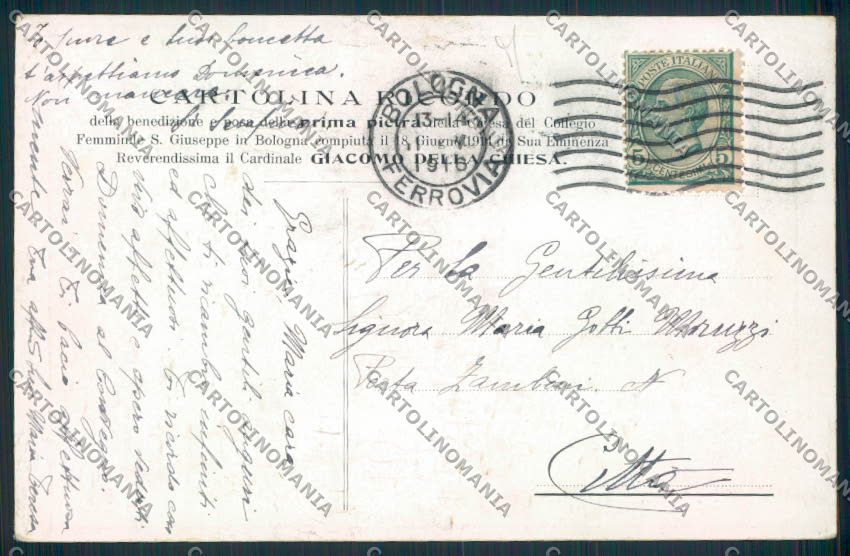 Io pure e tua Concetta
t'aspettiamo Domenica.
Non
CARTOLINA RICORDO
della benedizione e posa della prima pietra della Chiesa del Collegio
Femminile S. Giuseppe in Bologna compiuta il 18 Giugno 1914 da Sua Eminenza
Reverendissima il Cardinale GIACOMO DELLA CHIESA.
BOLOGNA
13
1916
FERROVIA
POSTE ITALIANE
5 CENTESIMI 5
Grazie, Maria cara,
dei tuoi gentili auguri
che ti ricambio infiniti
ed affettuosi. Ti ricordo con
vivo affetto e spero vederti
Domenica al Collegio.
Verrai? Ti bacio affettuosa
mente tua Maria
Per la Gentilissima
Signora Maria Gotti
Porta Zamboni N
Città
CARTOLINOMANIA